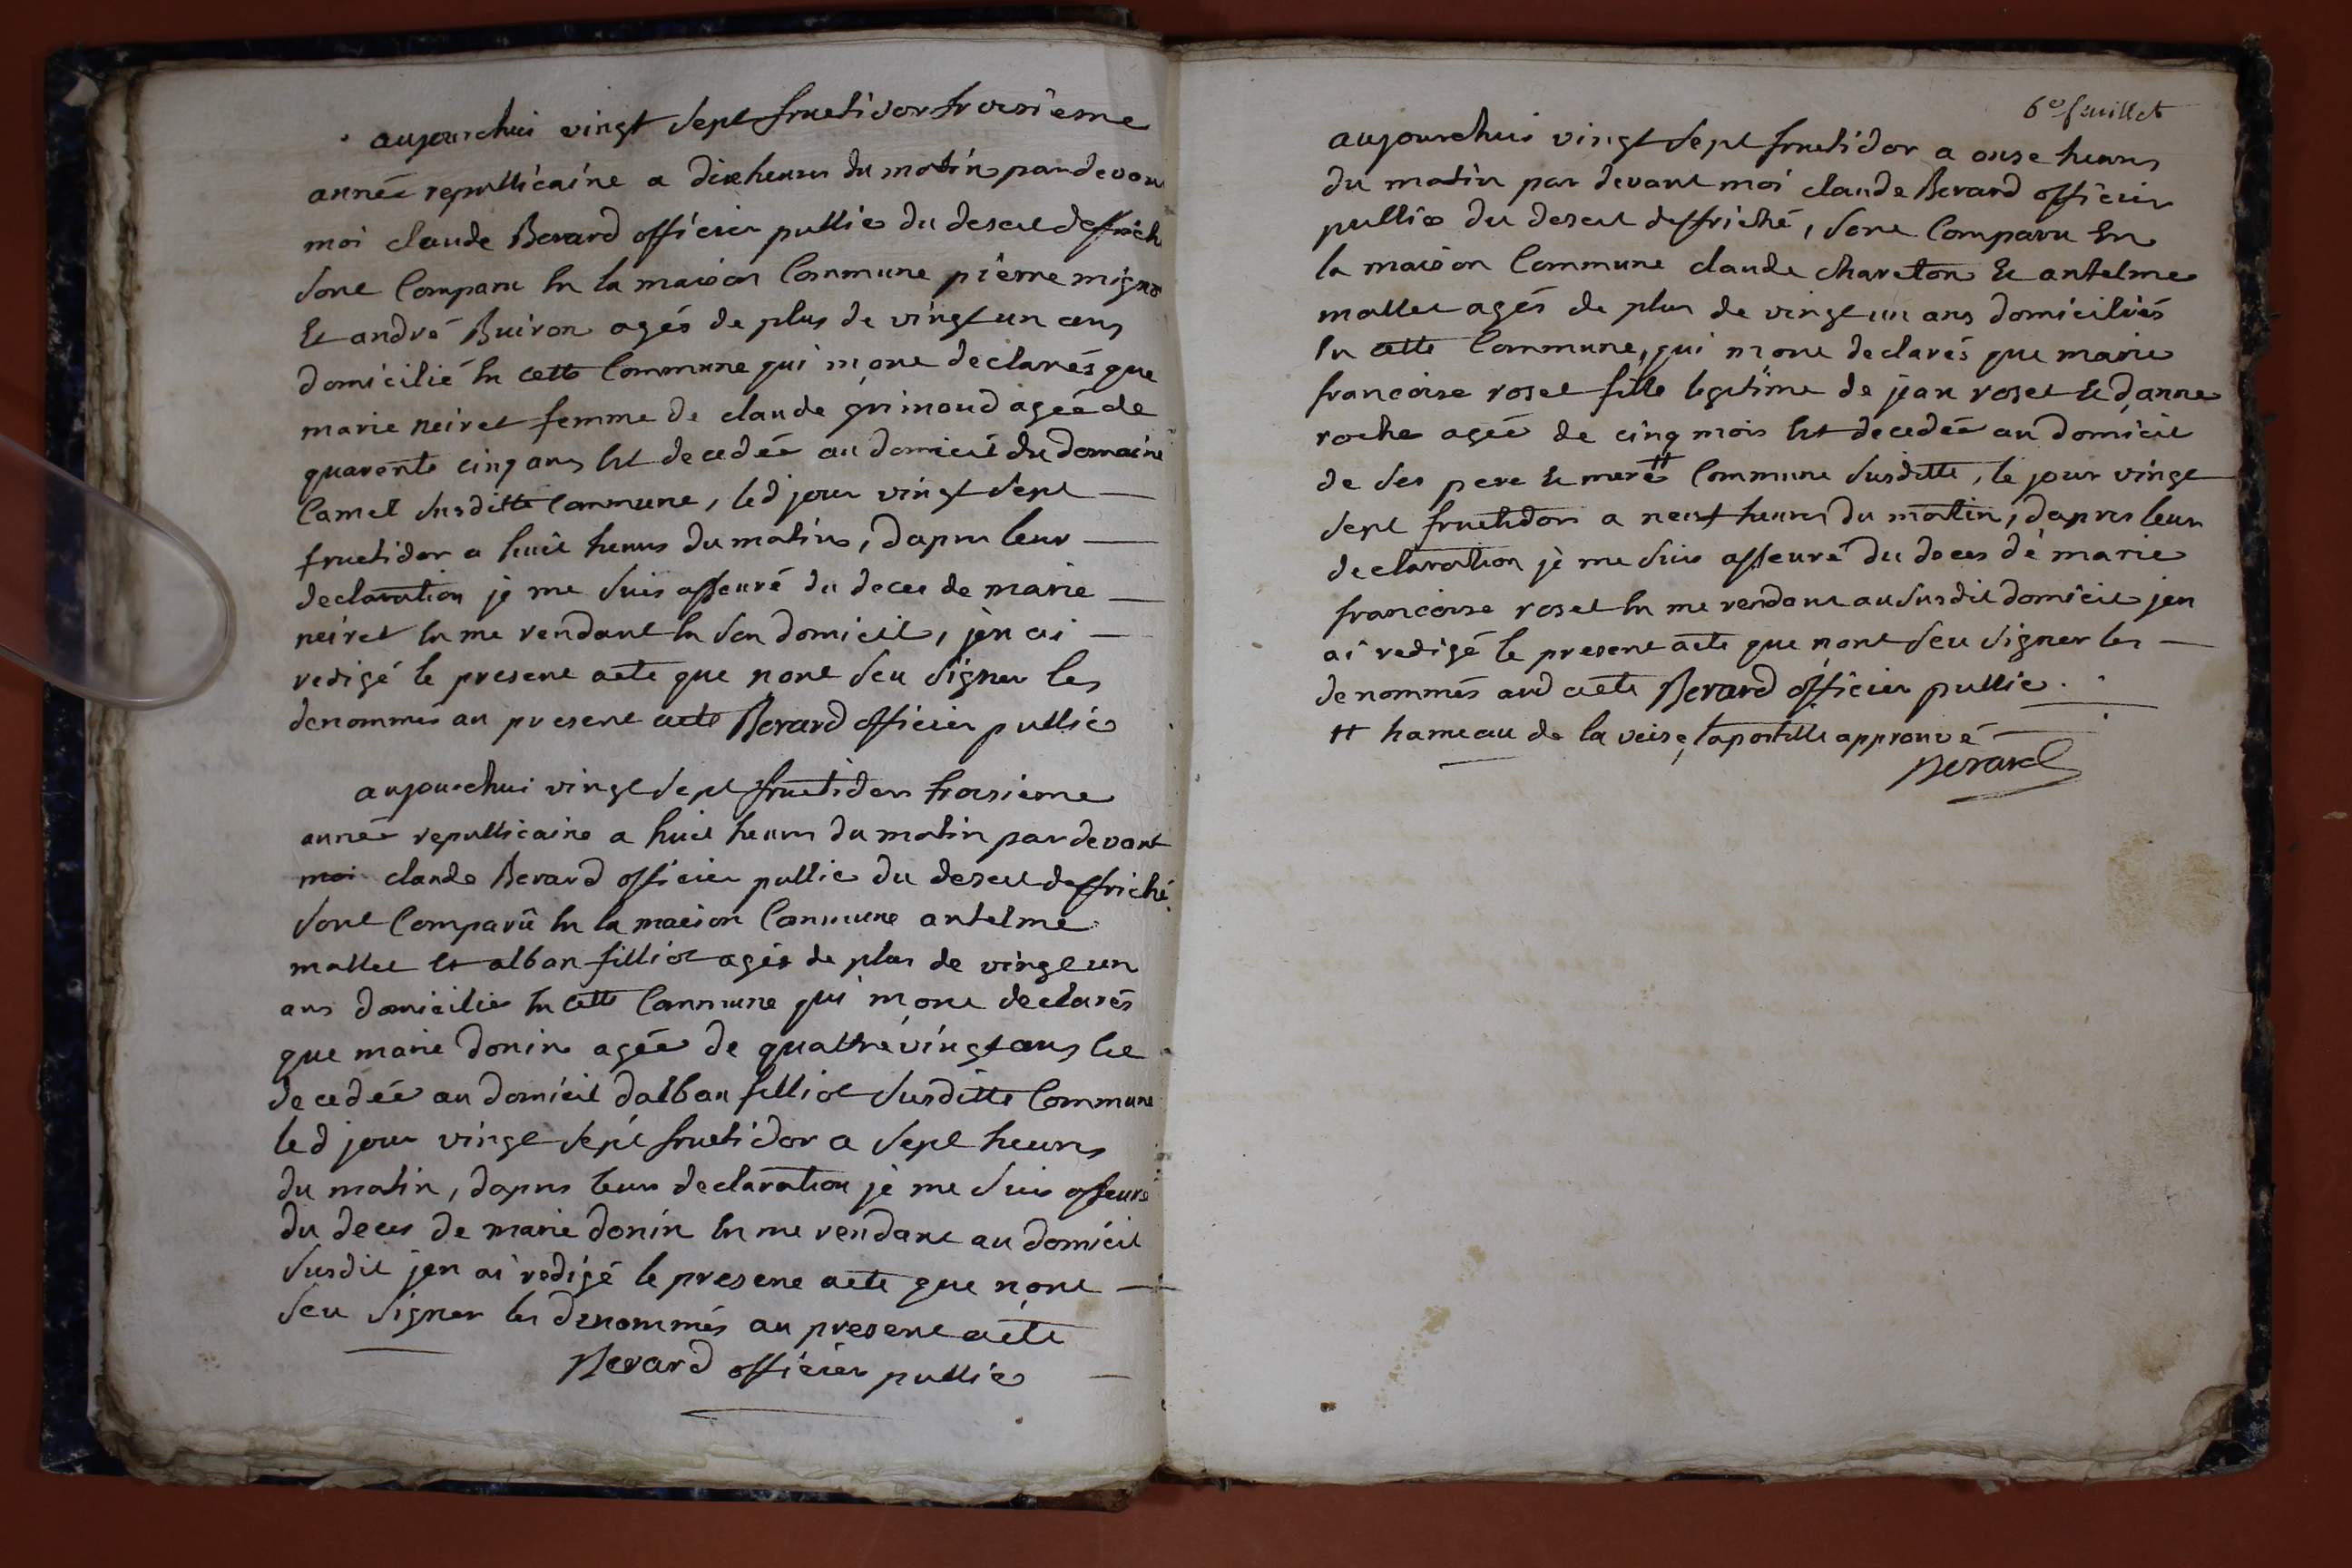 aujourdhui vingt sept fructidor troisieme
année republicaine a dix heures du matin par devant
moi claude Berard officier public du desert deffriché
sont Comparu En la maison Commune pierre
Et andré Buiron agés de plus de vingt un ans
domicilié En cette Commune qui mont declarés que
marie neiret femme de claude grimoud agée de
quarente cinq ans Est decedée au domicil du domaine
Camet susditte Commune, led jour vingt sept
fructidor a huit heures du matin, dapres leur
declaration je me suis asseuré du deces de marie
neiret En me rendant En son domicil, jen ai
redigé le present acte que nont seu signer les
denommés au present acte Berard officier public
aujourdhui vingt sept fructidor troisieme
année republicaine a huit heures du matin par devant
moi claude Berard officier public du desert deffriché
sont Comparû En la maison Commune antelme
mallet Et alban filliot agés de plus de vingt un
ans domicilié En cette Commune qui mont declarés
que marie donin agée de quattre vingt ans Est
decedée au domicil dalban filliot susditte Commune
led jour vingt sept fructidor a sept heures
du matin, dapres leur declaration je me suis asseuré
du deces de marie donin En me rendant au domicil
susdit jen ai redigé le present acte que nont
seu signer les denommés au present acte
Berard officier public
6e feuillet
aujourdhui vingt sept fructidor a onse heures
du matin par devant moi claude Berard officier
public du desert deffriché, sont Comparu En
la maison Commune claude chareton Et antelme
mallet agés de plus de vingt un ans domiciliés
En cette Commune, qui mont declarés que marie
francoise roset fille legitime de jean roset Et danne
roche agée de cinq mois Est decedée au domicil
de ses pere Et mere # Commune susditte, le jour vingt
sept fructidor a neuf heures du matin, dapres leur
declaration je me suis asseuré du deces de marie
francoise roset En me rendant au susdit domicil jen
ai redigé le present acte que nont seu signer les
denommés aud acte Berard officier public.
# hameau de la veise, lapostille approuvé
Berard